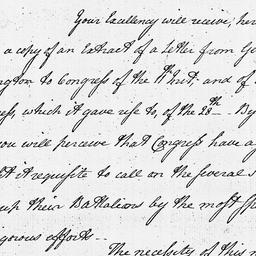 Your Excellency will receive, her
a copy of an extract of a Letter from Ge
ngton to Congress of the 11th inst, and of
ess, which it gave rise to, of the 28th. By
you will perceive that Congress have a
it requisite to call on the several s
up their Battalions by the most sp
igorous efforts..
The necessity of this m